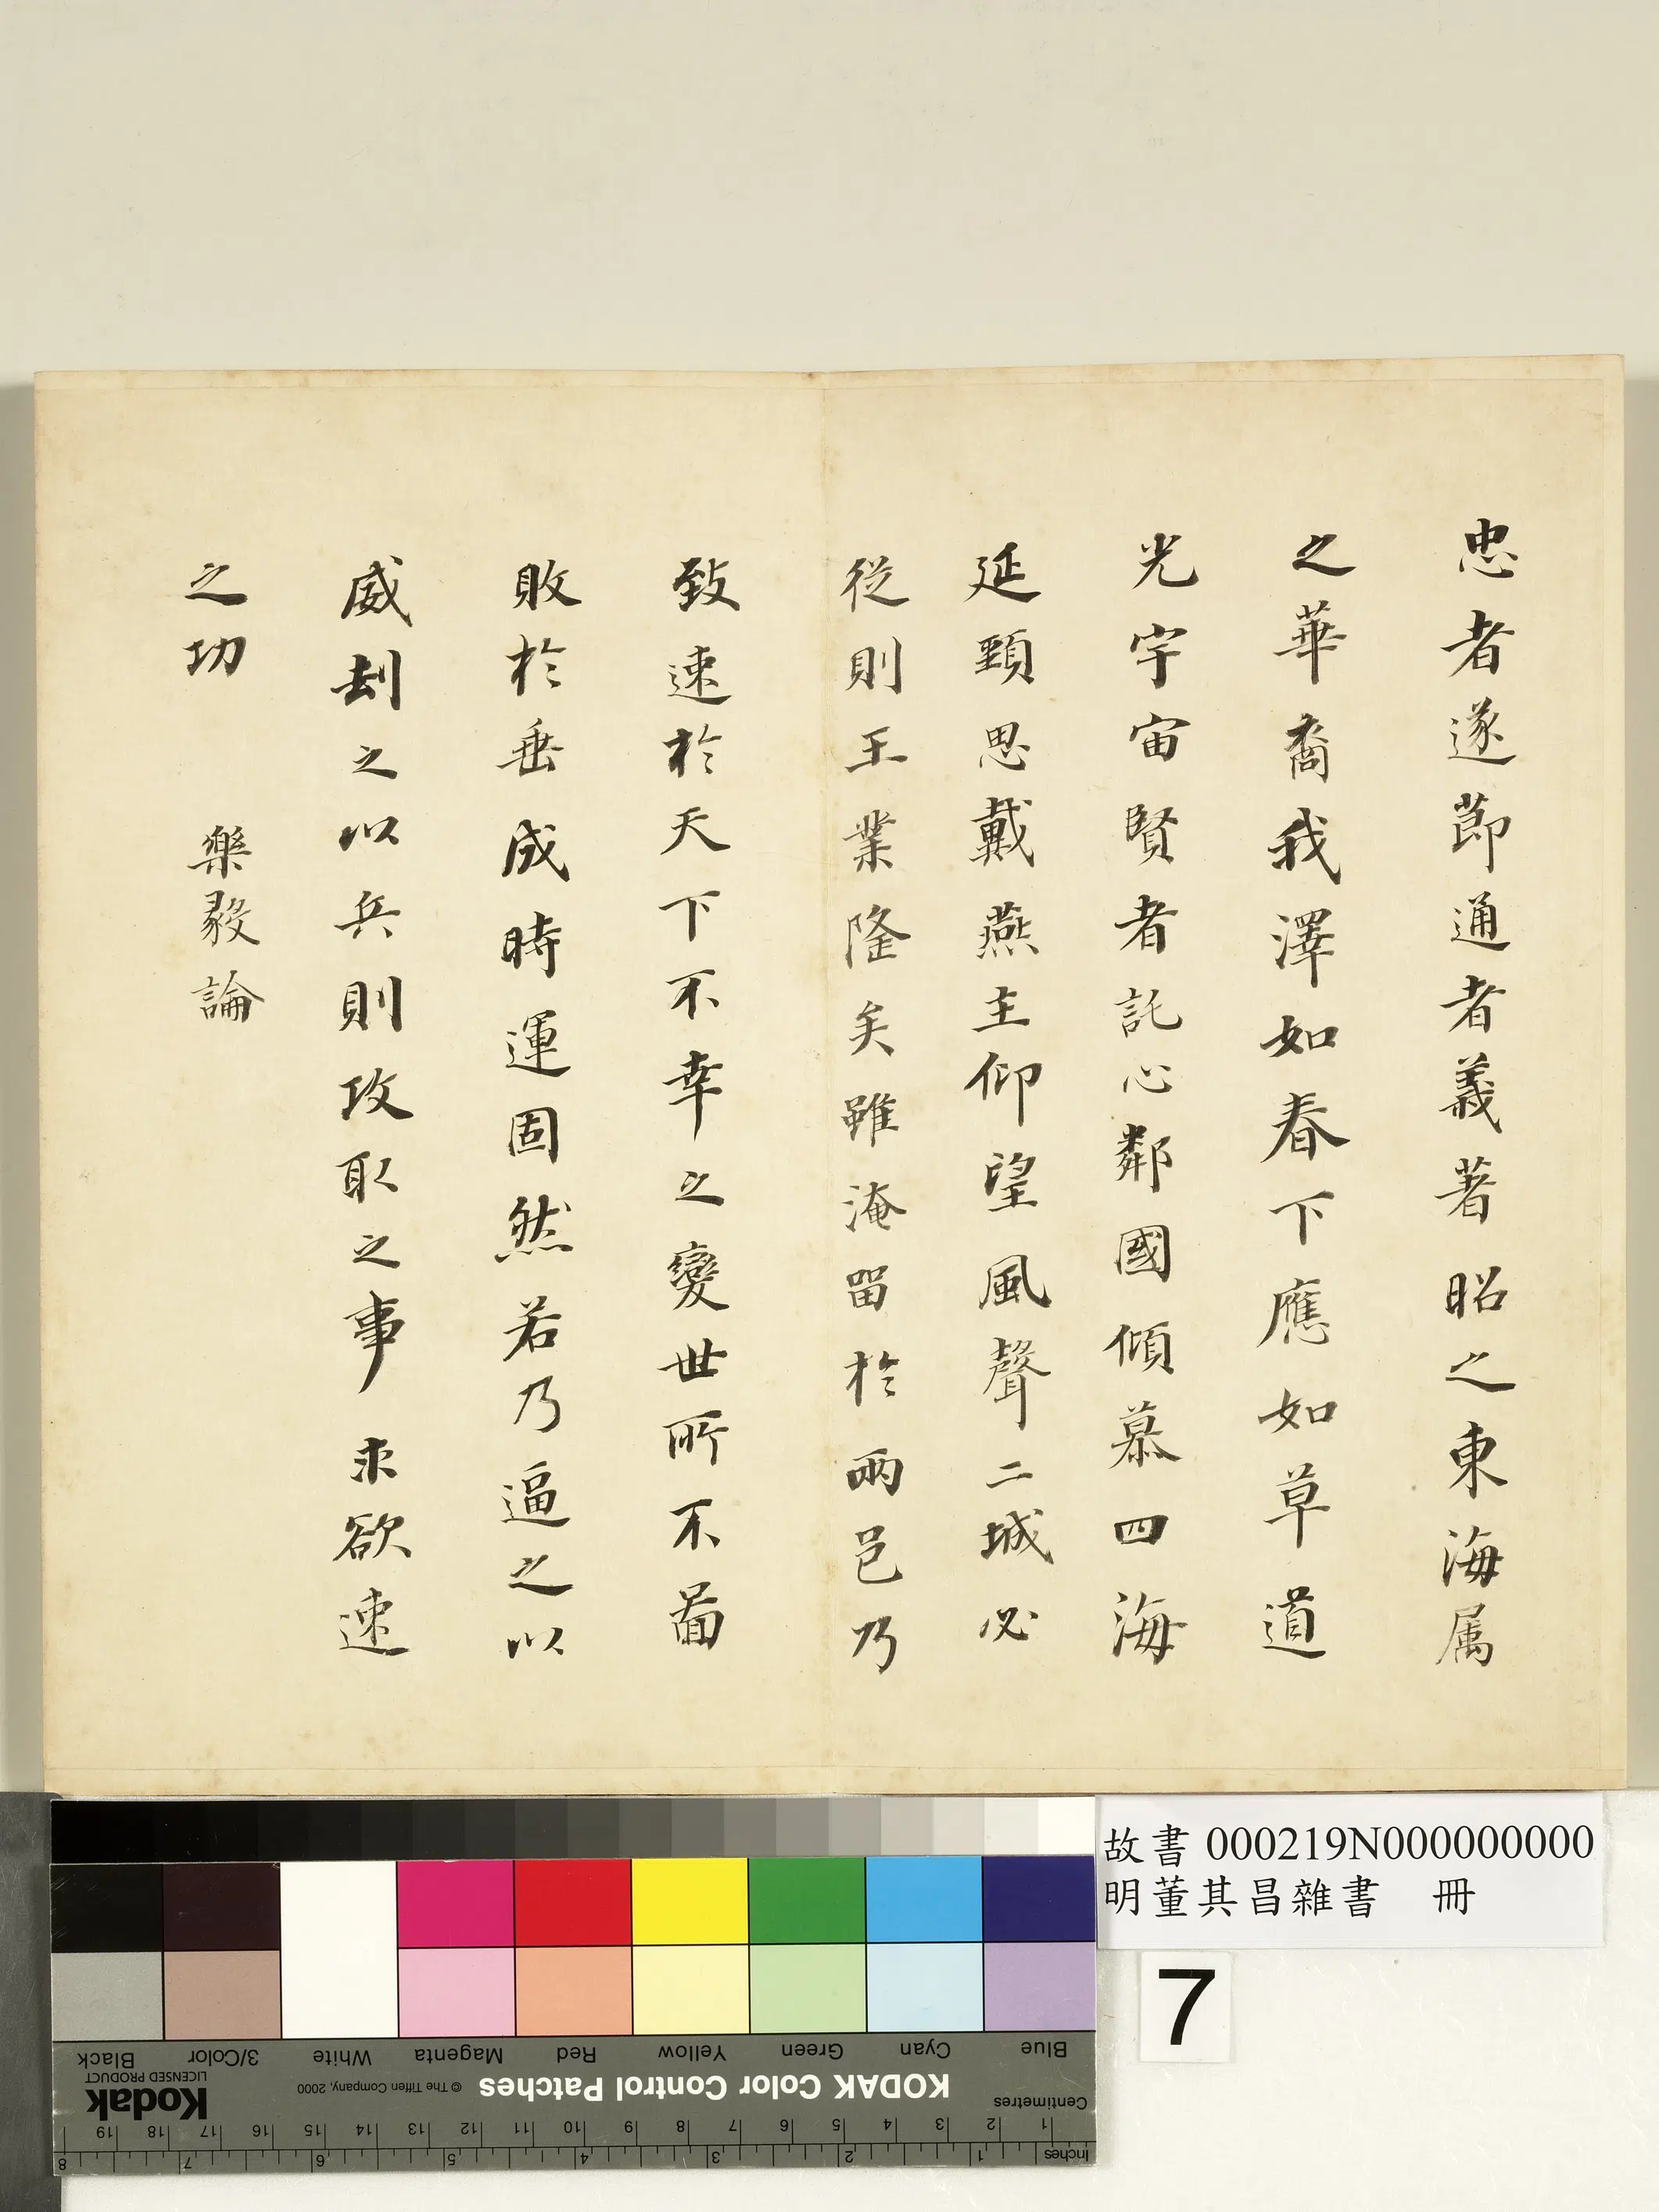 忠者遂節通者義著昭之東海属
之華裔我澤如春下應如草道
光宇宙賢者託心鄰國傾慕四海
延頸思戴燕主仰望風聲二城必
從則王業隆矣雖淹留於兩邑乃
致速於天下不幸之變世所不啚
敗於垂成時運固然若乃逼之以
威刦之以兵則攻取之事求欲速
之功
樂毅論
故書 000219N000000000
明董其昌雜書 冊
7
Blue Cyan Green Yellow Red Magenta White 3/Color Black
KODAK Color Control Patches
© The Tiffen Company, 2000
Kodak
LICENSED PRODUCT
Centimetres
1 2 3 4 5 6 7 8 9 10 11 12 13 14 15 16 17 18 19
Inches
1 2 3 4 5 6 7 8